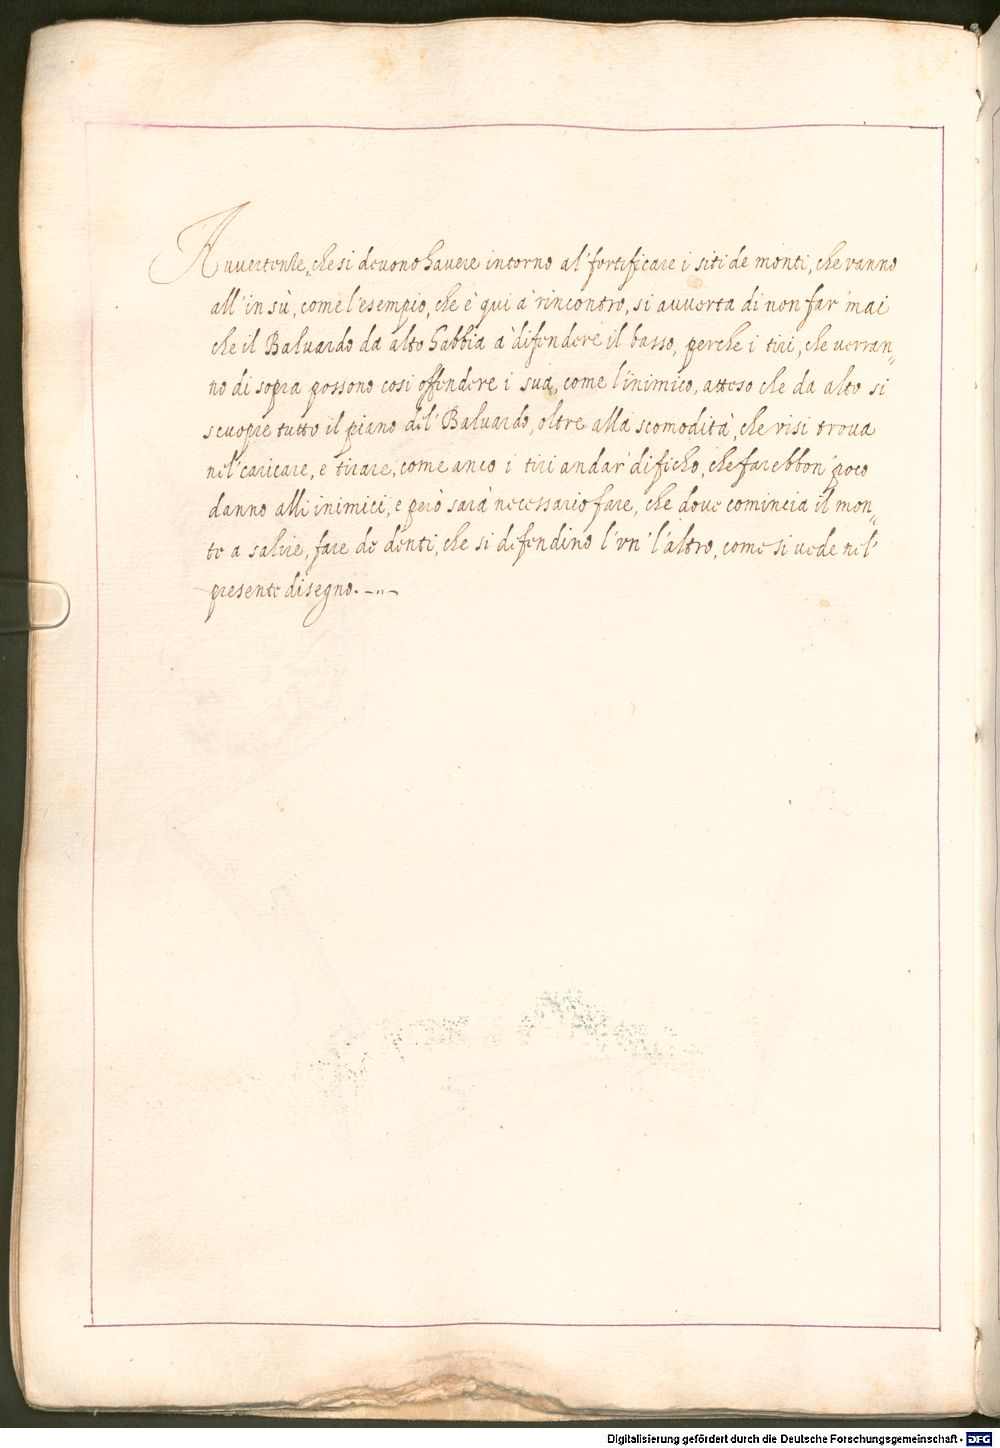 Auuertenze, che si deuono hauere intorno al' fortificare i siti de monti, che vanno
all'in sù, come l'esempio, che è qui à rincontro, si auuerta di non far' mai
che il Baluardo da alto habbia à difendere il basso, perche i tiri, che verran=
no di sopra possono cosi offendere i sua, come l'inimico, atteso che da alto si
scuopre tutto il piano del' Baluardo, oltre alla scomodità, che visi troua
nel' caricare, e tirare, come anco i tiri andar' di ficho, che farebbon' poco
danno alli inimici, e però sarà necessario fare, che doue comincia il mon=
te a salire, fare de denti, che si difendino l'vn' l'altro, come si uede nel'
presente disegno.
Digitalisierung gefördert durch die Deutsche Forschungsgemeinschaft - DFG